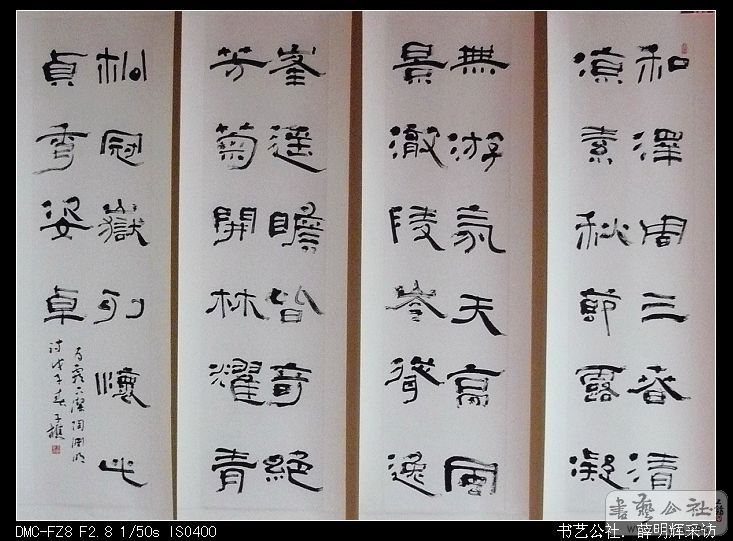 和澤周三春清
涼素秋節露凝
無游氛天高風
景澈陵岑聳逸
峯遥瞻皆奇絕
芳菊開林耀青
松冠嶽列懷此
貞秀姿卓
為霜下傑陶淵明
詩戊子春子樵
書藝公社
DMC-FZ8 F2.8 1/50s ISO400
书艺公社．薛明辉采访